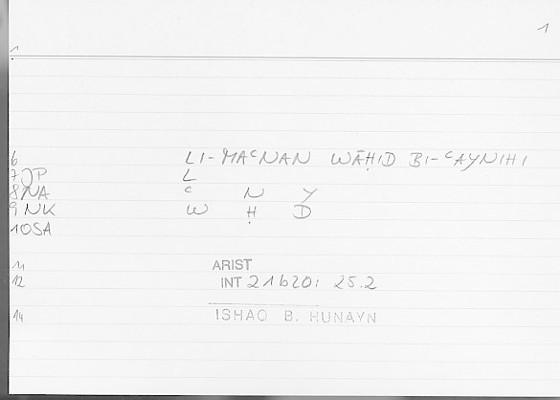 1
1
6 LI-MAᶜNAN WĀḤID BI-ᶜAYNIHI
7 JP L
8 NA ᶜ N Y
9 NK W Ḥ D
10 SA
11 ARIST
12 INT 21b20; 25.2
14 ISHAQ B. HUNAYN